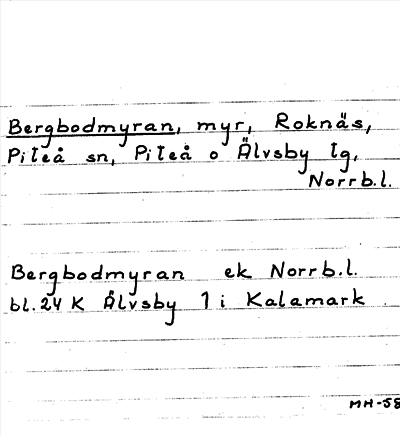 Bergbodmyran, myr, Roknäs,
Piteå sn, Piteå o Älvsby tg,
Norrb.l.
Bergbodmyran ek Norrb.l.
bl. 24 K Älvsby 1 i Kalamark
MH-58